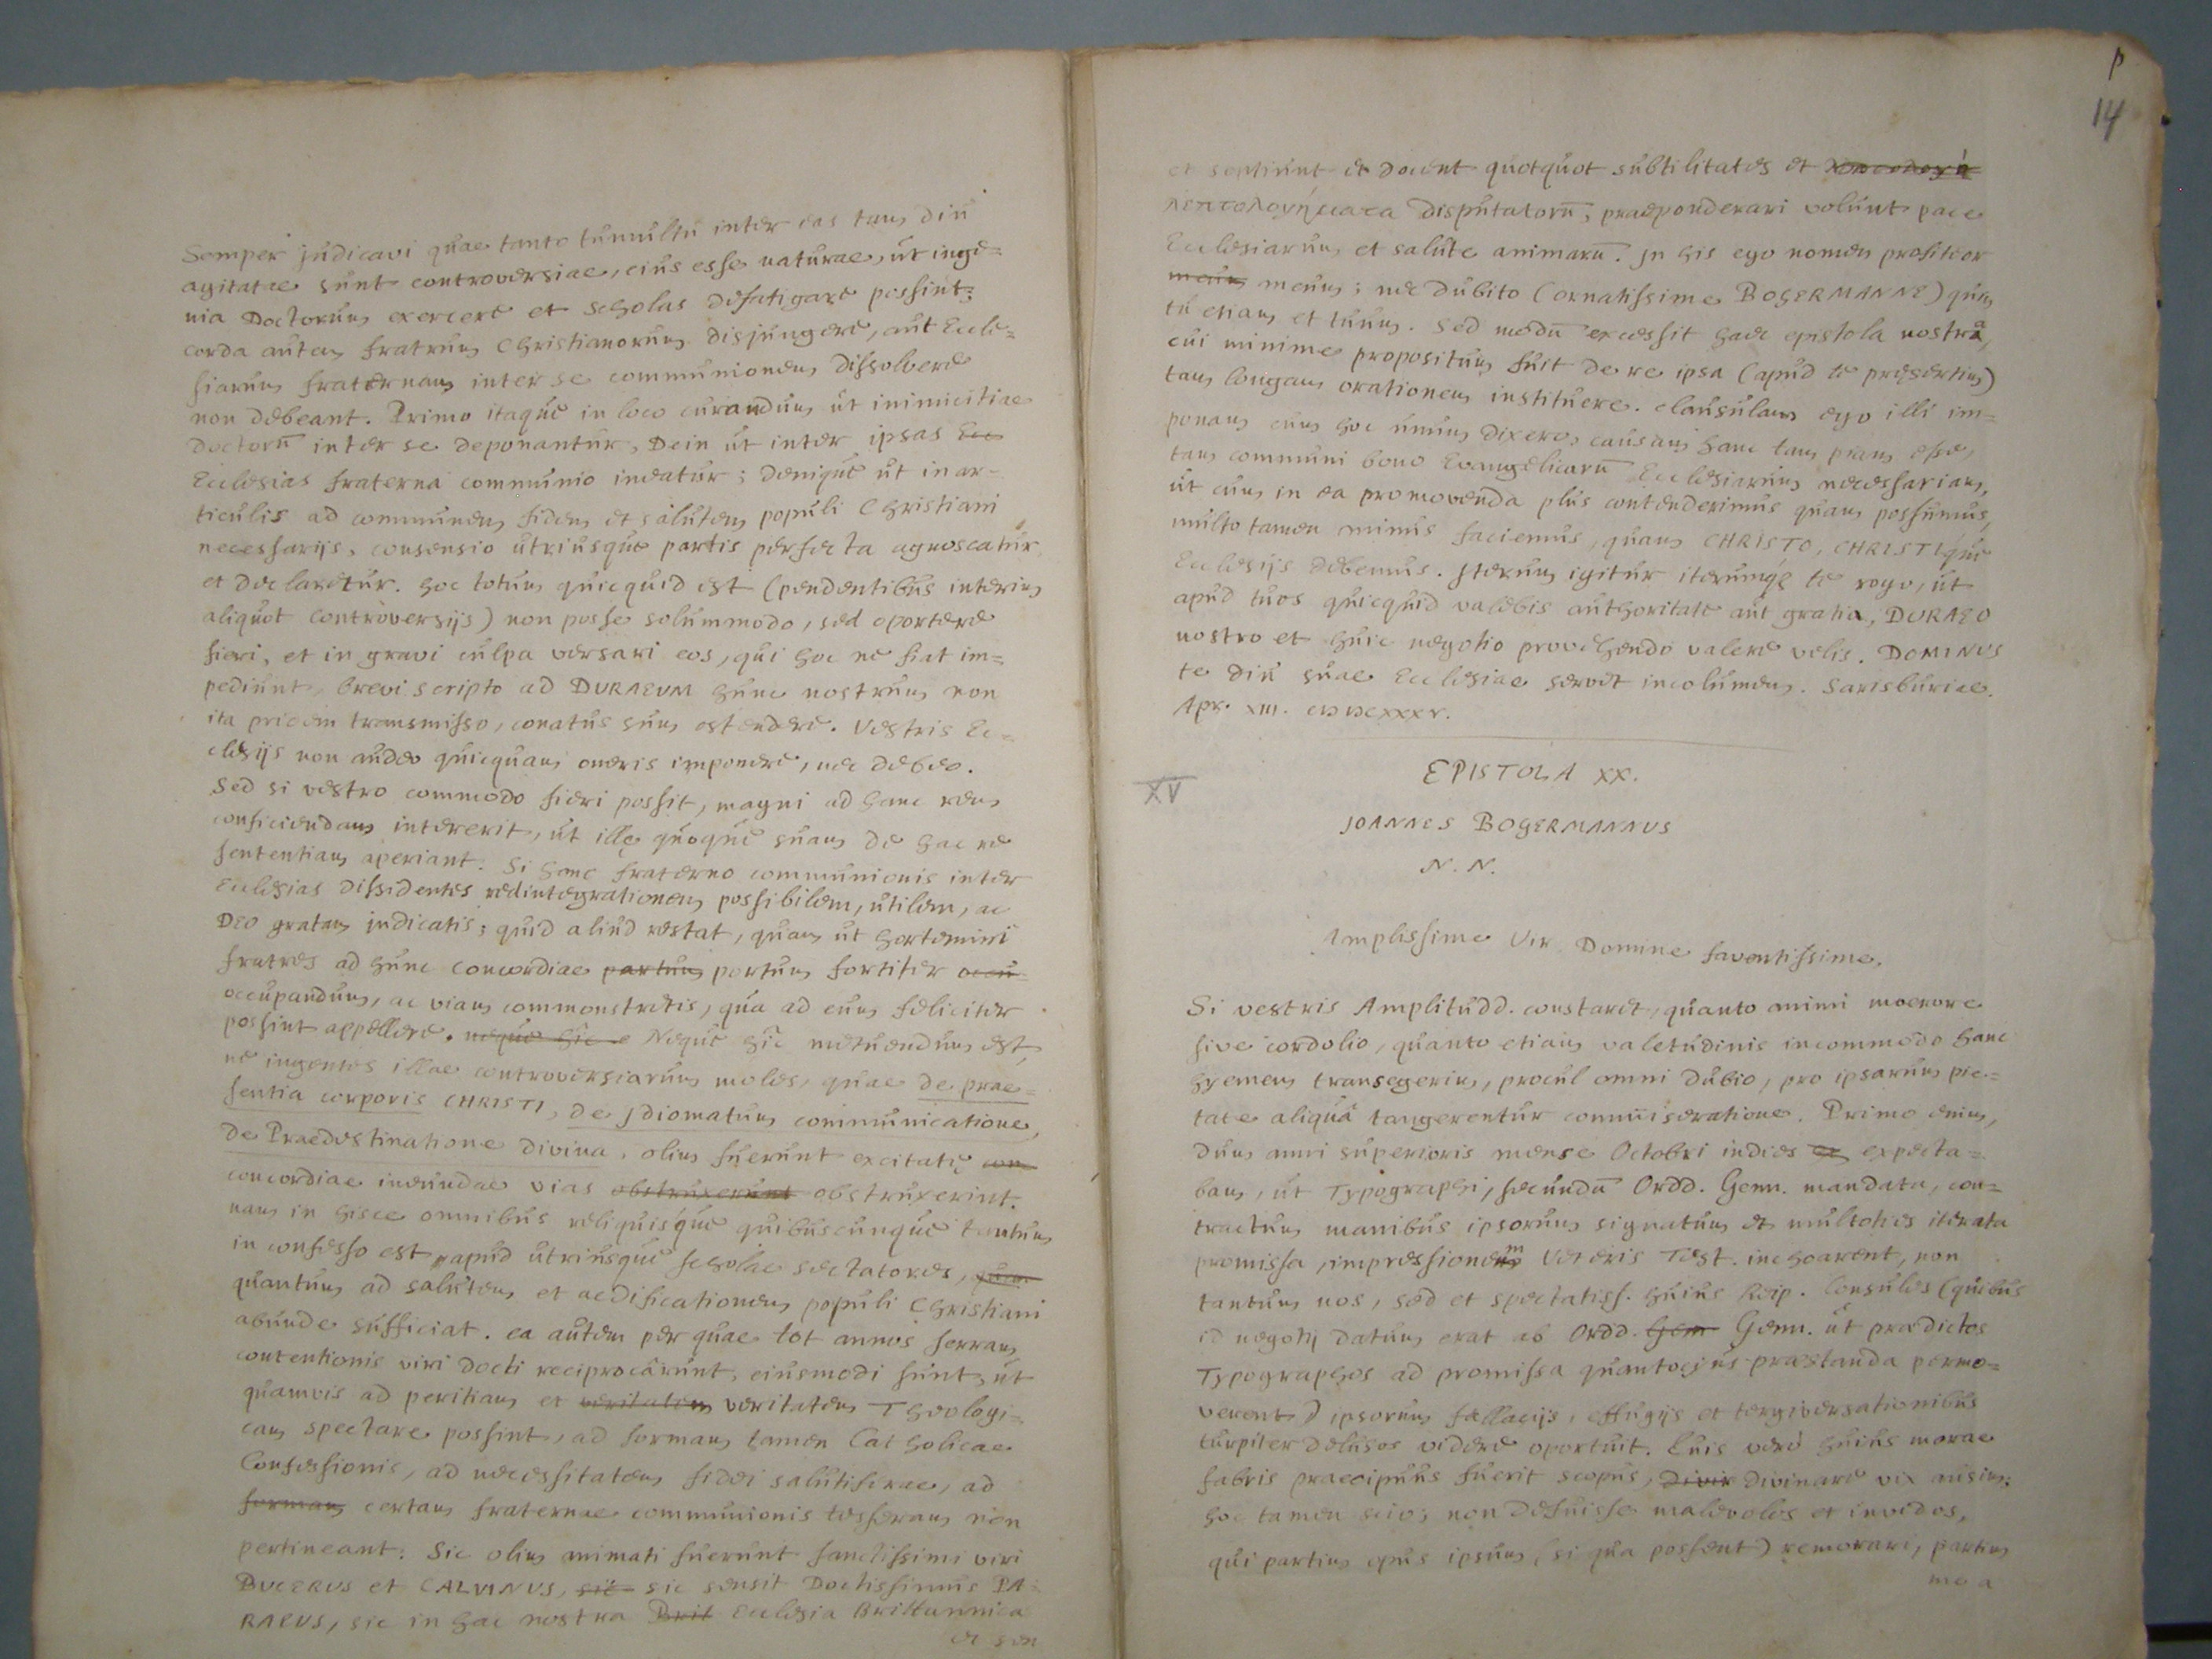 Semper judicavi quae tanto tumultu inter eas tam diu
agitatae sunt controversiae, eius esse naturae, ut inge=
nia Doctorum exercere et scholas defatigare possint;
corda autem fratrum Christianorum disjungere, aut Eccle=
siarum fraternam inter se communionem dissolvere
non debeant. Primo itaque in loco curandum ut inimicitiae
Doctorū inter se deponantur, Dein ut inter ipsas Ecc
Ecclesias fraterna communio ineatur; denique ut in ar-
ticulis ad communem fidem et salutem populi Christiani
necessarijs, consensio utriusque partis perfecta agnoscatur
et declaretur. hoc totum quicquid est (pendentibus interim
aliquot controversijs) non posse solummodo, sed oportere
fieri, et in gravi culpa versari eos, qui hoc ne fiat im=
pediunt, brevi scripto ad DURAEUM hunc nostrum non
ita pridem transmisso, conatus sum ostendere. Vestris Ec=
clesijs non audeo quicquam oneris imponere, nec debeo.
Sed si vestro commodo fieri possit, magni ad hanc rem
conficiendam intererit, ut illę quoque suam de hac re
sententiam aperiant. Si hanc fraterno communionis inter
Ecclesias dissidentes redintegrationem possibilem, utilem, ac
DEO gratam judicatis; quid aliud restat, quam ut hortemini
fratres ad hunc concordiae partum portum fortiter occu
occupandum, ac viam commonstretis, qua ad eum feliciter
possint appellere. neque hic e Neque hîc metuendum est,
ne ingentes illae controversiarum moles, quae de prae=
sentia corporis CHRISTI, de jdiomatum communicatione,
de Praedestinatione divina, olim fuerunt excitatę con
concordiae ineundae vias obstruxerunt obstruxerint.
nam in hisce omnibus reliquisque quibuscunque tantum
in confesso est apud utriusque scholae sectatores, quan
quantum ad salutem et aedificationem populi Christiani
abunde sufficiat. ea autem per quae tot annos serram
contentionis viri docti reciprocârunt, eiusmodi sunt, ut
quamvis ad peritiam et veritatem veritatem Theologi=
cam spectare possint, ad formam tamen Catholicae
Confessionis, ad necessitatem fidei salutiferae, ad
formam certam fraternae communionis tesseram non
pertineant. Sic olim animati fuerunt sanctissimi viri
BUCERUS et CALVINUS, sic sic sensit Doctissimus PA=
RAEUS, sic in hac nostra Brit Ecclesia Brittannica
et sen
p
14
et sentiunt et docent quotquot subtilitates et
λεπτολογήματα disputatorū, praeponderari volunt pace
Ecclesiarum et salute animarū. jn his ego nomen profiteor
meum meum; nec dubito (ornatissime BOGERMANNE) quin
tu etiam et tuum. Sed modū excessit haec epistola nostra,
cui minime propositum fuit de re ipsa (apud te pręsertim)
tam longam orationem instituere. clausulam ego illi im=
ponam cum hoc unum dixero, causam hanc tam piam esse,
tam communi bono Evangelicarū Ecclesiarum necessariam,
ut cum in ea promovenda plus contenderimus quam possumus,
multo tamen minus faciemus, quam CHRISTO, CHRISTIque
Ecclesijs debemus. jterum igitur iterumqꝫ te rogo, ut
apud tuos quicquid valebis authoritate aut gratia, DURAEO
nostro et huic negotio provehendo valere velis. DOMINUS
te diu suae Ecclesiae servet incolumem. Sarisburiae.
Apr. XIII. CIƆ IƆCXXXV.
EPISTOLA XX.
XV
JOANNES BOGERMANNUS
N. N.
Amplissime Vir Domine faventissime,
Si vestris Amplitudd. constaret, quanto animi moerore
sive cordolio, quanto etiam valetudinis incommodo hanc
hyemem transegerim, procul omni dubio, pro ipsarum pie=
tate aliquâ tangerentur commiseratione. Primo enim,
dum anni superioris mense Octobri indies ex expecta=
bam, ut Typographi, secundū Ordd. Genn. mandata, con=
tractum manibus ipsorum signatum et multoties iterata
promissa, impressionem Veteris Test. inchoarent, non
tantum nos, sed et spectatiss. huius Reip. Consules (quibus
id negotij datum erat ab Ordd. Gen Genn. ut praedictos
Typographos ad promissa quantocijus praestanda permo=
verent) ipsorum fallacijs, effugijs et tergiversationibus
turpiter delusos videre oportuit. Cuis verò huius morae
fabris praecipuus fuerit scopus, divin divinare vix ausim;
hoc tamen scio; non defuisse malevolos et invidos,
qui partim opus ipsum (si qua possent) remorari, partim
me a